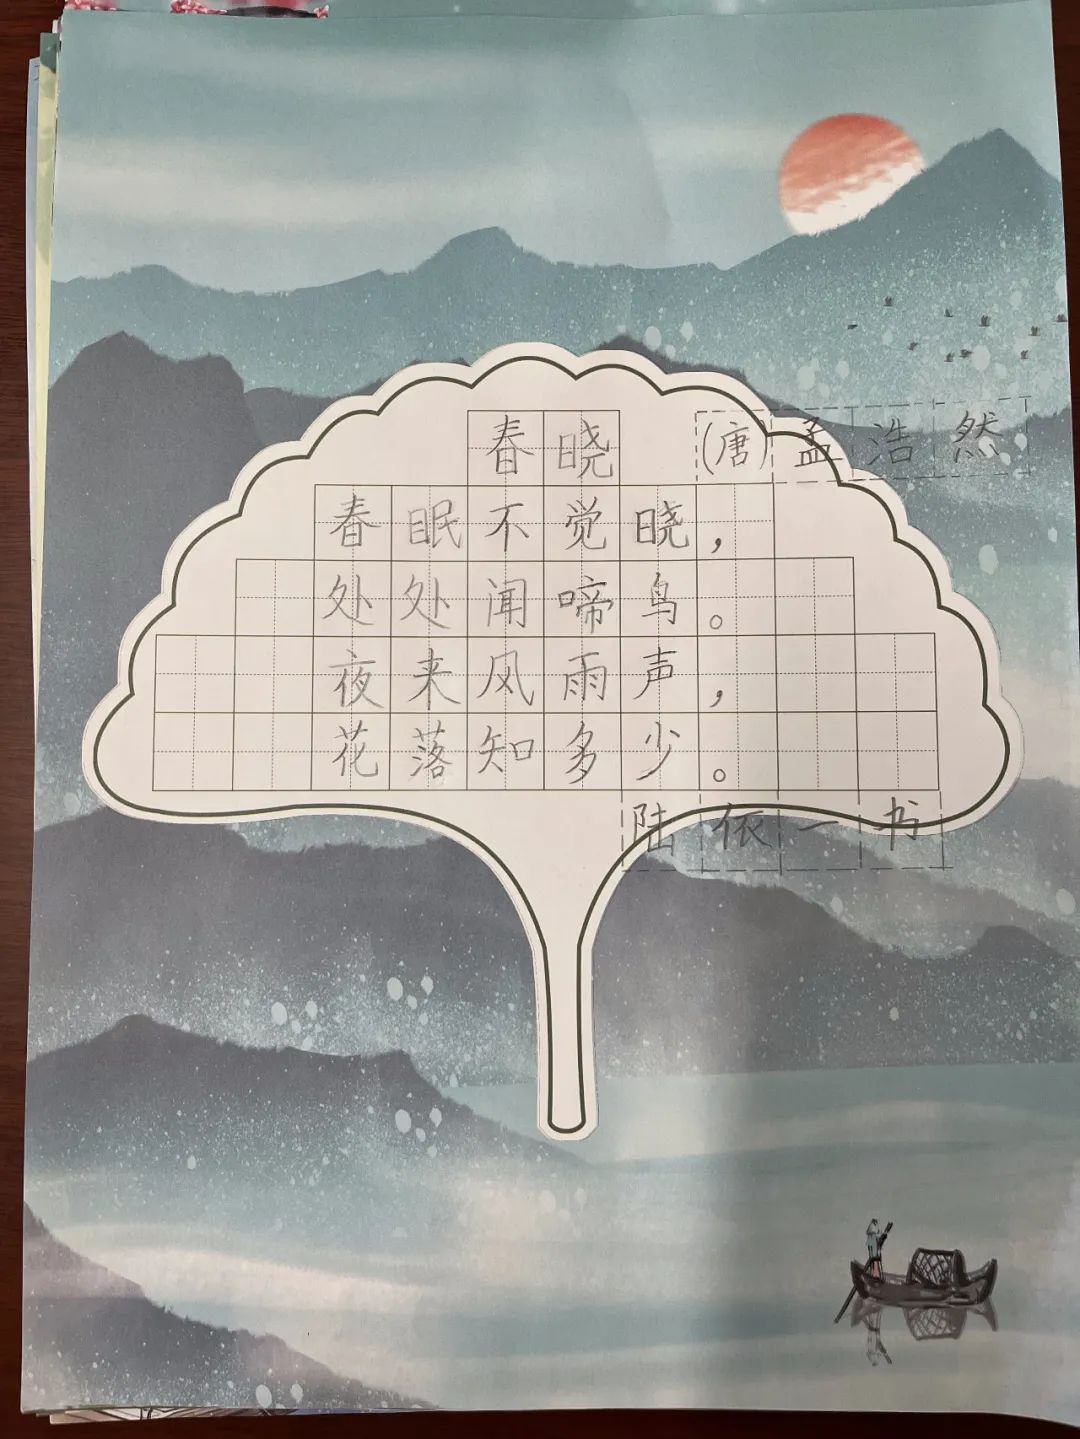 春晓 (唐)孟浩然
春眠不觉晓，
处处闻啼鸟。
夜来风雨声，
花落知多少。
陆依一书